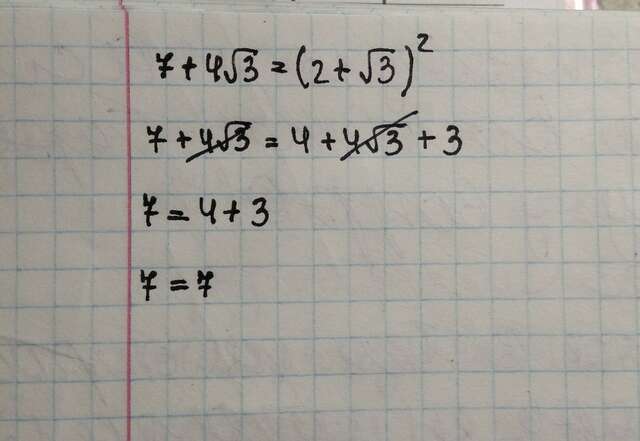 7 + 4√3 = (2 + √3)²
7 + 4√3 = 4 + 4√3 + 3
7 = 4 + 3
7 = 7